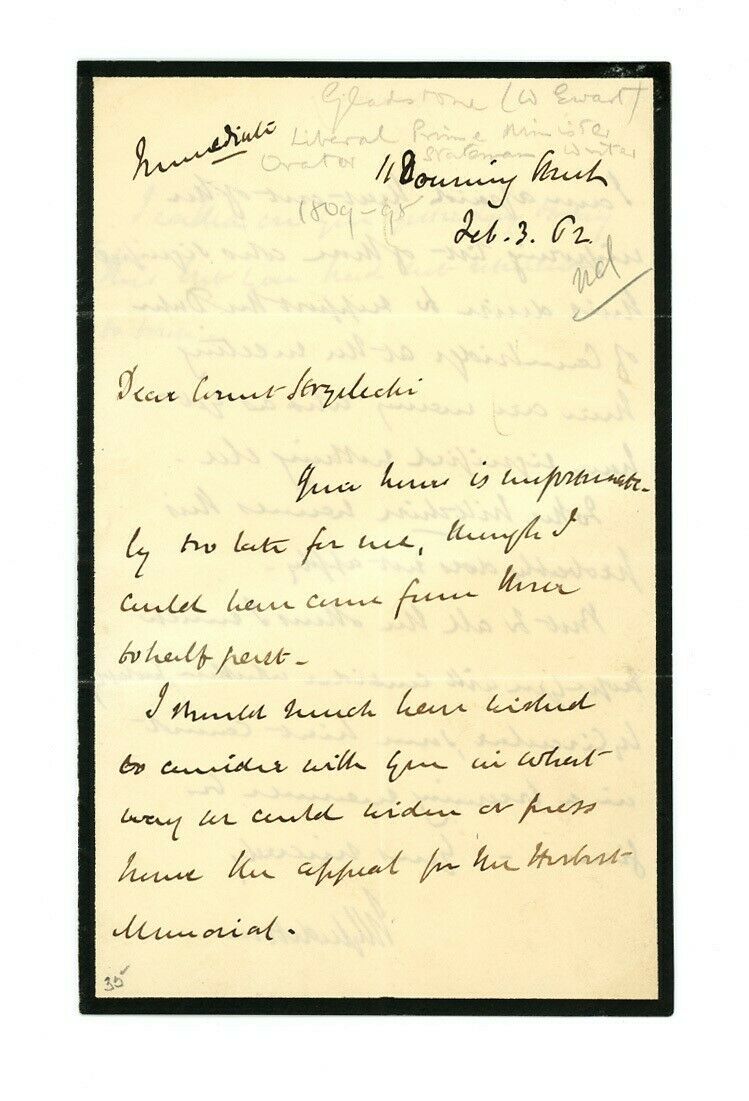 Gladstone (W Ewart)
Liberal Prime Minister
Orator Statesman Writer
1809-98
Immediate
11 Downing Street
Feb. 3. 62
Dear Count Strzelecki
Your hour is unfortunate-
ly too late for me, though I
could have come from three
to half past-
I should much have wished
to consider with you in what
way we could widen or press
home the appeal for the Herbert
Memorial.
35